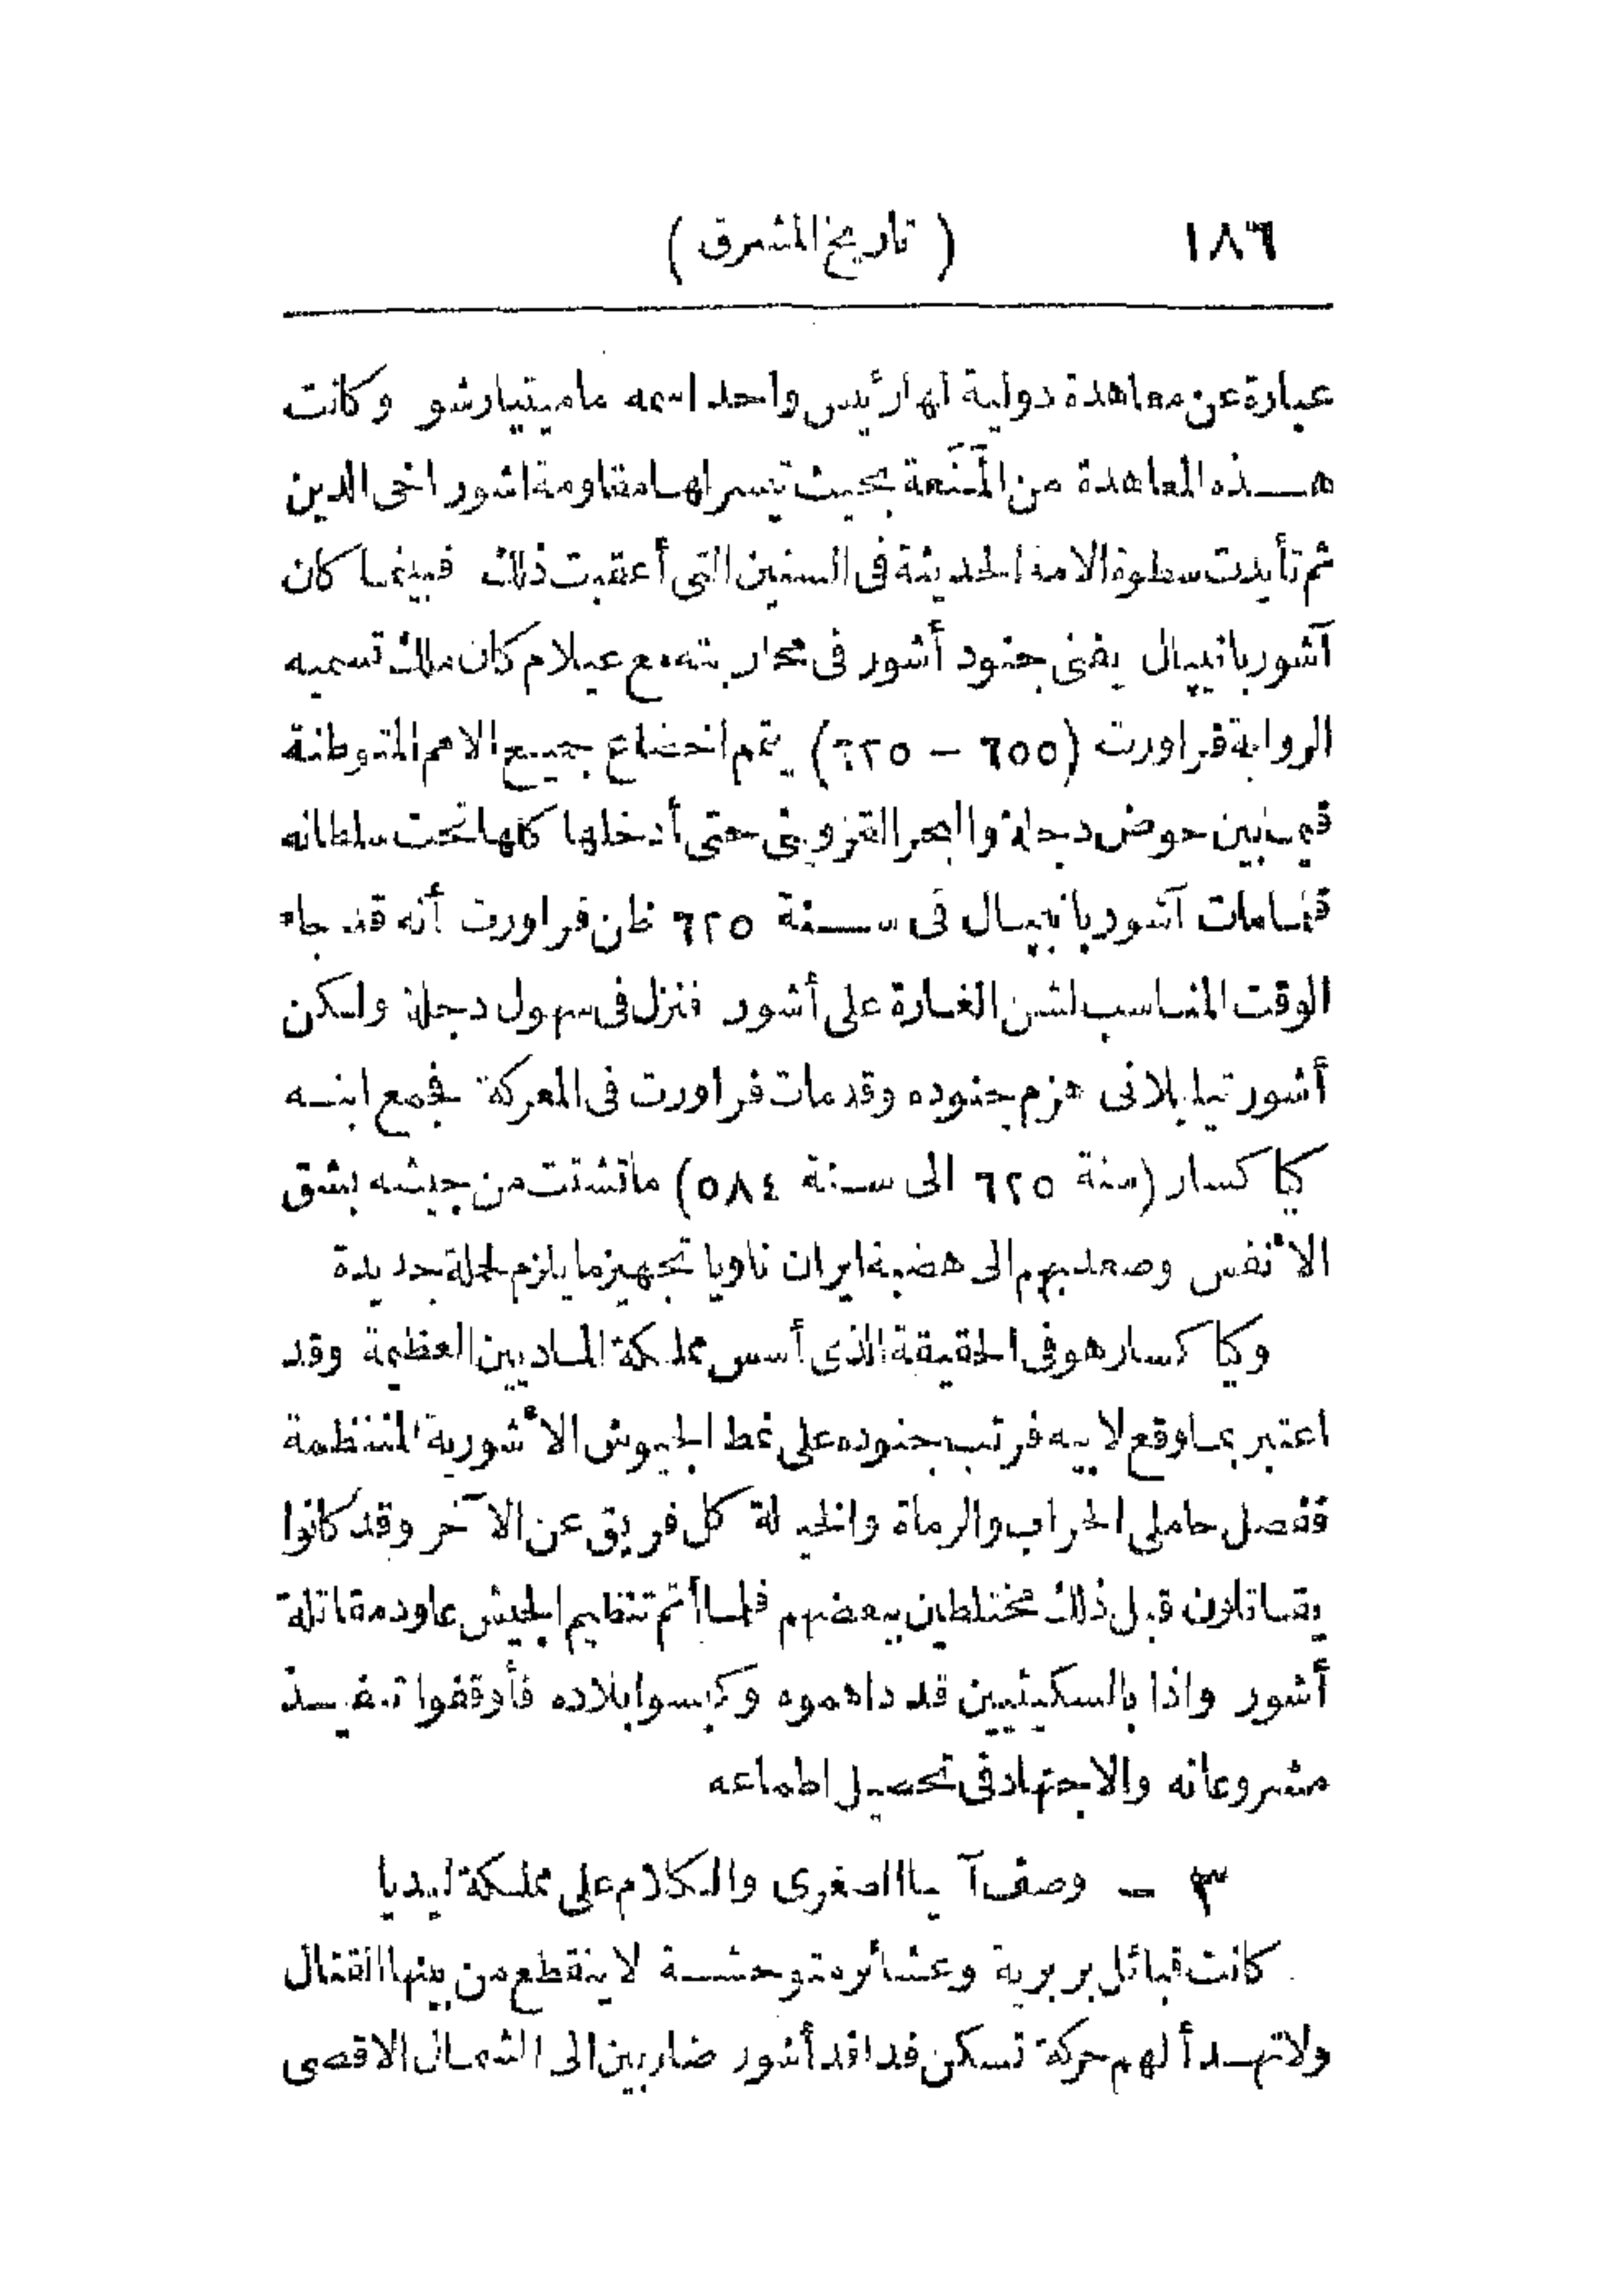 ١٨٦ ( تاريخ المشرق )
عبارة عن معاهدة دولية لها رئيس واحد اسمه ماميتيارشو وكانت
هـذه المعاهدة من المَنَعة بحيث تيسر لها مقاومة اشور اخى الدين
ثم تأيدت سطوة الامة الحديثة فى السنين التى أعقبت ذلك فبينما كان
آشور بانيبال يفنى جنود أشور فى محاربته مع عيلام كان ملك تسميه
الرواية فراورت (٦٥٥ - ٦٢٥) يتمم اخضاع جميع الامم المتوطنة
فيما بين حوض دجلة والبحر القزوينى حتى أدخلها كلها تحت سلطانه
فلما مات آشور بانيبال فى سنة ٦٢٥ ظن فراورت أنه قد جاء
الوقت المناسب لشن الغارة على أشور فنزل فى سهول دجلة ولكن
أشور تيليلانى هزم جنوده وقد مات فراورت فى المعركة فجمع ابنه
كيا كسار (سنة ٦٢٥ الى سنة ٥٨٤) ما تشتت من جيشه بشق
الأنفس وصعد بهم الى هضبة ايران ناويا تجهيز ما يلزم لحملة جديدة
وكيا كسار هو فى الحقيقة الذى أسس مملكة الماديين العظيمة وقد
اعتبر بما وقع لابيه فرتب جنوده على نمط الجيوش الأشورية المنتظمة
ففصل حاملى الحراب والرماة والخيالة كل فريق عن الآخر وقد كانوا
يقاتلون قبل ذلك مختلطين ببعضهم فلما أتم تنظيم الجيش عاود مقاتلة
أشور واذا بالسكيثيين قد داهموه وكبسوا بلاده فأوقفوا تنفيذ
مشروعاته والاجتهاد فى تحصيل اطماعه
٣ - وصف آسيا الصغرى والكلام على مملكة ليديا
كانت قبائل بربرية وعشائر متوحشة لا ينقطع من بينها القتال
ولا تهدأ لهم حركة تسكن فدافد أشور ضاربين الى الشمال الاقصى